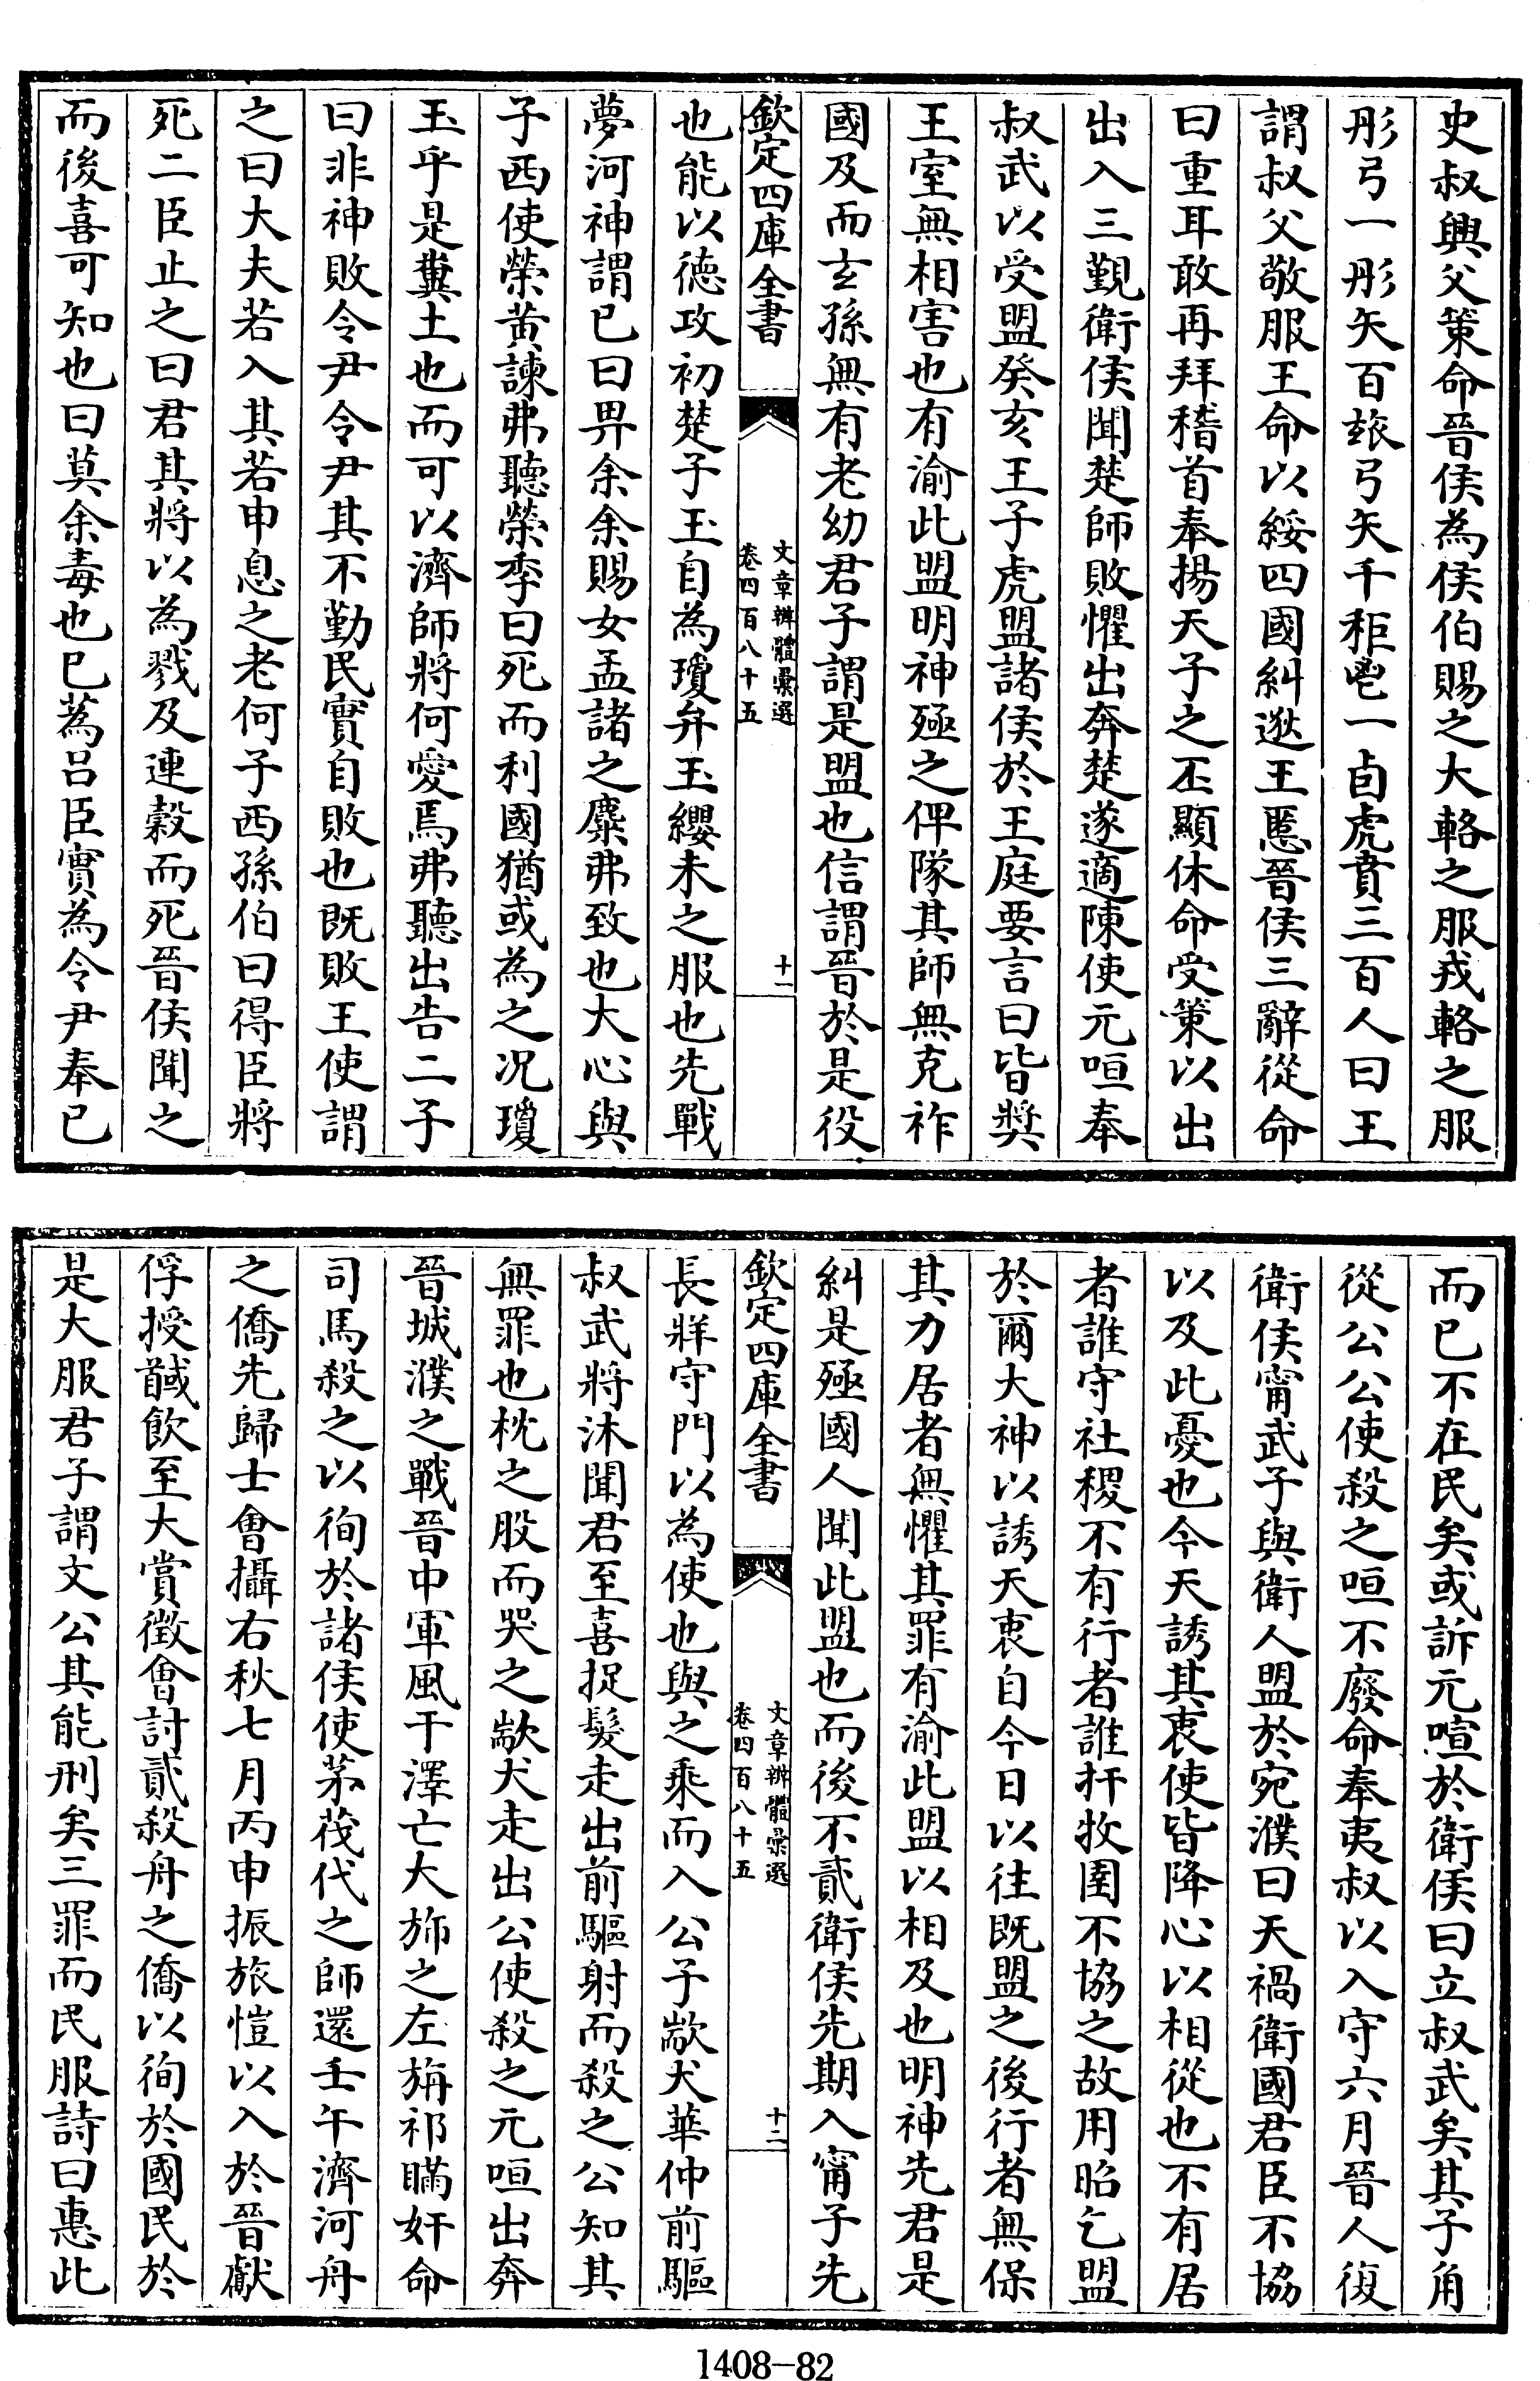 史叔興父策命晉侯為侯伯賜之大輅之服戎輅之服
彤弓一彤矢百玈弓矢千秬鬯一卣虎賁三百人曰王
謂叔父敬服王命以綏四國糾逖王慝晉侯三辭從命
曰重耳敢再拜稽首奉揚天子之丕顯休命受策以出
出入三覲衛侯聞楚師敗懼出奔楚遂適陳使元咺奉
叔武以受盟癸亥王子虎盟諸侯於王庭要言曰皆奬
王室無相害也有渝此盟明神殛之俾隊其師無克祚
國及而玄孫無有老幼君子謂是盟也信謂晉於是役
欽定四庫全書
文章辨體彙選
卷四百八十五
十一
也能以德攻初楚子玉自為瓊弁玉纓未之服也先戰
夢河神謂已曰畀余余賜女孟諸之麋弗致也大心與
子西使榮黄諫弗聽榮季曰死而利國猶或為之况瓊
玉乎是糞土也而可以濟師將何愛焉弗聽出告二子
曰非神敗令尹令尹其不勤民實自敗也既敗王使謂
之曰大夫若入其若申息之老何子西孫伯曰得臣將
死二臣止之曰君其將以為戮及連穀而死晉侯聞之
而後喜可知也曰莫余毒也已蒍呂臣實為令尹奉已
而已不在民矣或訴元喧於衛侯曰立叔武矣其子角
從公公使殺之咺不廢命奉夷叔以入守六月晉人復
衛侯甯武子與衛人盟於宛濮曰天禍衛國君臣不協
以及此憂也今天誘其衷使皆降心以相從也不有居
者誰守社稷不有行者誰扞牧圉不協之故用昭乞盟
於爾大神以誘天衷自今日以往既盟之後行者無保
其力居者無懼其罪有渝此盟以相及也明神先君是
糾是殛國人聞此盟也而後不貳衛侯先期入甯子先
欽定四庫全書
文章辨體彙選
卷四百八十五
十二
長牂守門以為使也與之乘而入公子歂犬華仲前驅
叔武將沐聞君至喜捉髮走出前驅射而殺之公知其
無罪也枕之股而哭之歂犬走出公使殺之元咺出奔
晉城濮之戰晉中軍風于澤亡大旆之左旃祁瞞奸命
司馬殺之以徇於諸侯使茅茷代之師還壬午濟河舟
之僑先歸士會攝右秋七月丙申振旅愷以入於晉獻
俘授馘飲至大賞徴會討貳殺舟之僑以徇於國民於
是大服君子謂文公其能刑矣三罪而民服詩曰惠此
1408-82